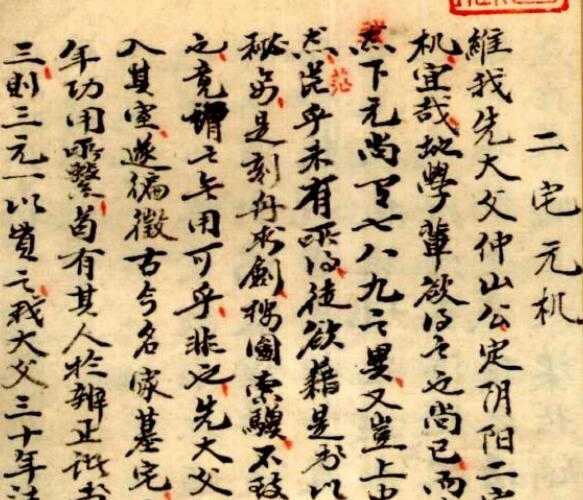 二宅元机
維我先大父仲山公定阴阳二
机宜哉地學輩欲得之尚已而
下元尚有七八九之異又豈上中
茫乎未有所得徒欲藉是书以
秘是刻舟求劍按圖索驥不致
之竟謂之無用可乎非也先大父
入其室遂徧徵古今名家墓宅
年功用所繫苟有其人於辨正諸书
三則三元一以貫之我大父三十年
茫